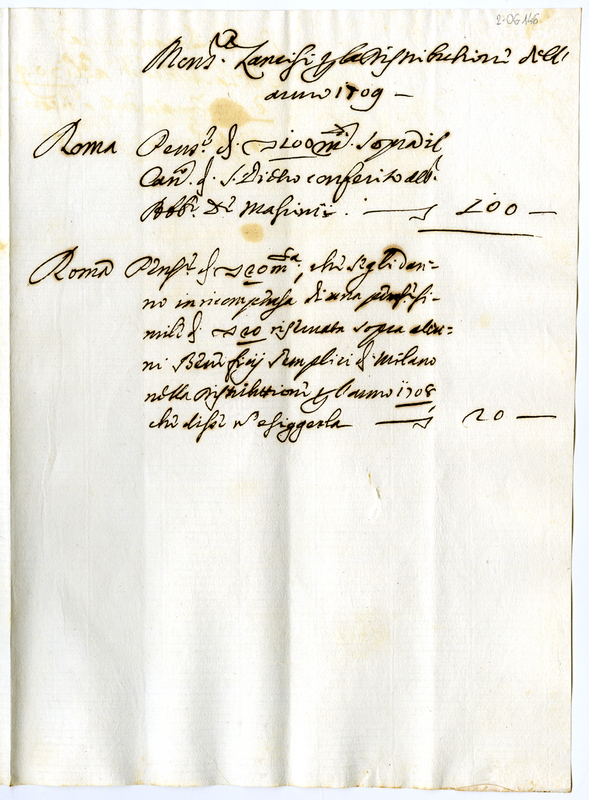 2-OG 146
Mons.r Lancisi p la distributione dell'
anno 1709 —
Roma Pens.e di s 100 m.ta sopra il
Can.to di S. Pietro conferito all'
Abb.e de Massimi. — s 100 —
Roma Pens.e di s 20 m.ta, che se gli dan=
no in ricompensa di una pens.e si=
mile di s 20 riservata sopra alcu=
ni Beneficij semplici di Milano
nella distributione p l'anno 1708
che disse n esiggerla — s 20 —